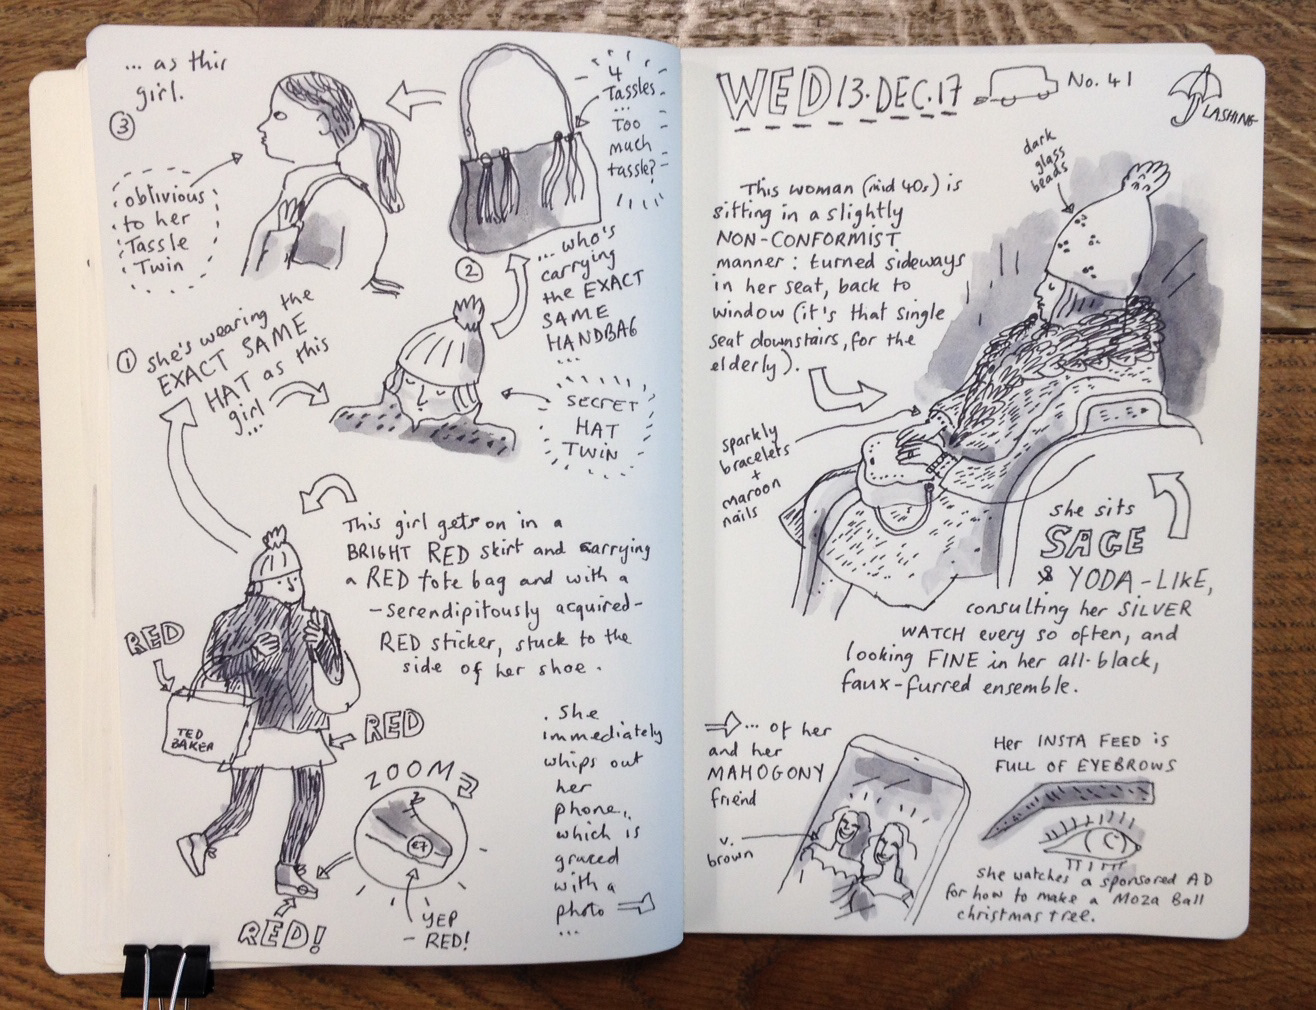 ... as this
girl.
③
oblivious
to her
Tassle
Twin
4
Tassles
...
Too
much
tassle?
②
... who's
carrying
the EXACT
SAME
HANDBAG
...
① she's wearing the
EXACT SAME
HAT as this
girl
...
SECRET
HAT
TWIN
This girl gets on in a
BRIGHT RED skirt and carrying
a RED tote bag and with a
-serendipitously acquired-
RED sticker, stuck to the
side of her shoe.
RED
TED
BAKER
RED
ZOOM
£7
YEP
- RED!
RED!
. She
immediately
whips out
her
phone,
which is
graced
with a
photo
...
WED 13.DEC.17
No. 41
LASHING
dark
glass
beads
This woman (mid 40s) is
sitting in a slightly
NON-CONFORMIST
manner: turned sideways
in her seat, back to
window (it's that single
seat downstairs, for the
elderly).
sparkly
bracelets
+
maroon
nails
she sits
SAGE
& YODA-LIKE,
consulting her SILVER
WATCH every so often, and
looking FINE in her all-black,
faux-furred ensemble.
... of her
and her
MAHOGONY
friend
v.
brown
Her INSTA FEED is
FULL OF EYEBROWS
She watches a sponsored AD
for how to make a Moza Ball
christmas tree.